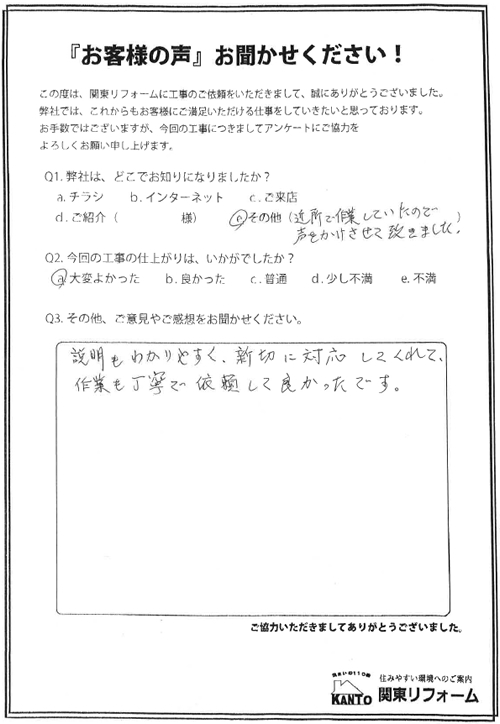 『お客様の声』お聞かせください！
この度は、関東リフォームに工事のご依頼をいただきまして、誠にありがとうございました。
弊社では、これからもお客様にご満足いただける仕事をしていきたいと思っております。
お手数ではございますが、今回の工事につきましてアンケートにご協力を
よろしくお願い申し上げます。
Q1. 弊社は、どこでお知りになりましたか？
a. チラシ b. インターネット c. ご来店
d. ご紹介（ 様） e その他（近所で作業していたので
声をかけさせて頂きました。）
Q2. 今回の工事の仕上がりは、いかがでしたか？
a 大変よかった b. 良かった c. 普通 d. 少し不満 e. 不満
Q3. その他、ご意見やご感想をお聞かせください。
説明もわかりやすく、新切に対応してくれて、
作業も丁寧で依頼して良かったです。
ご協力いただきましてありがとうございました。
住まいの110番 住みやすい環境へのご案内
KANTO 関東リフォーム